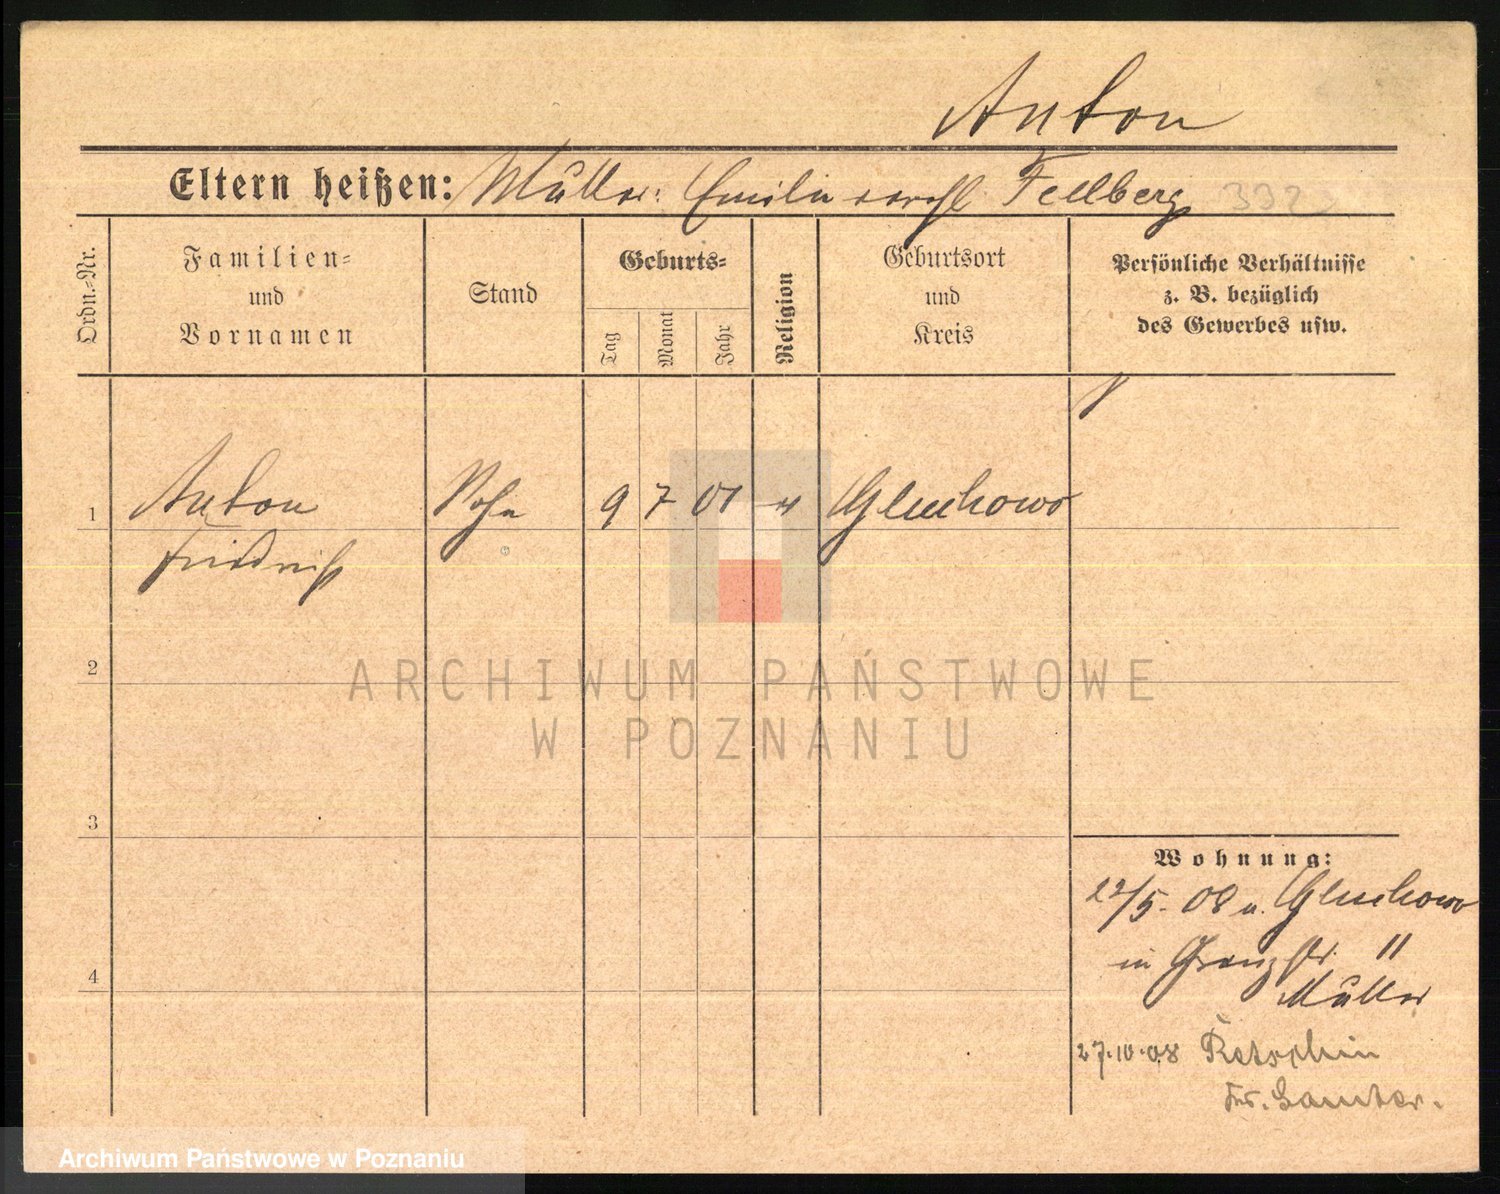 Anton
Eltern heißen: Mutter: Emilie verehl. Fellberg
Ordn.-Nr.
Familien-
und
Vornamen
Stand
Geburts-
Tag
Monat
Jahr
Religion
Geburtsort
und
Kreis
Persönliche Verhältnisse
z. B. bezüglich
des Gewerbes usw.
1
Anton
Friedrich
Sohn
9
7
01
Gluchowo
2
3
4
Wohnung:
22/5. 08 v. Gluchowo
in Grenzstr. 11
Mutter
27.10.08
Kr. Samter.
ARCHIWUM PAŃSTWOWE
W POZNANIU
Archiwum Państwowe w Poznaniu